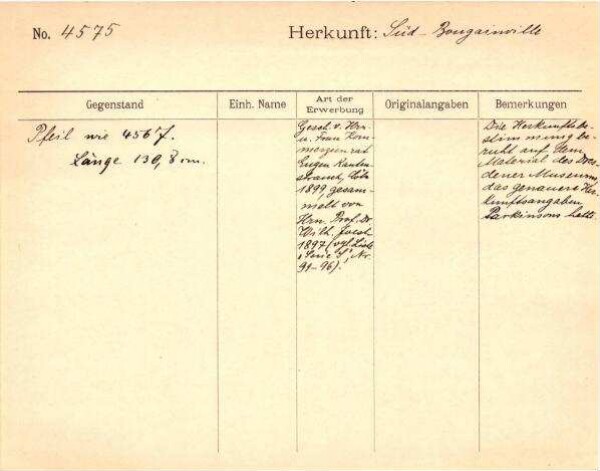 No. 4575
Herkunft: Süd-Bougainville
Gegenstand
Einh. Name
Art der Erwerbung
Originalangaben
Bemerkungen
Pfeil wie 4567.
Länge 130,8 cm.
Gesch. v. Hrn
u. Frau Kom-
merzienrat
Eugen Rauten-
strauch, Cöln
1899, gesam-
melt von
Hrn. Prof. Dr
Wilh. Joest
1897 (vgl. Liste
"Serie S", Nr.
91-96).
Die Herkunftsbe-
stimmung be-
ruht auf dem
Material des Dres-
dener Museums,
das genauere Her-
kunftsangaben
Parkinsons hatte.